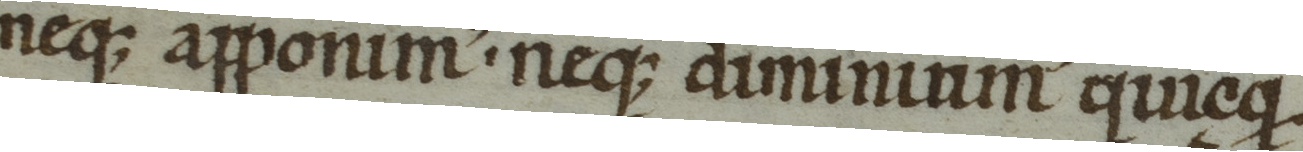 neq; apponim᾽· neq; diminuim᾽ quicq.